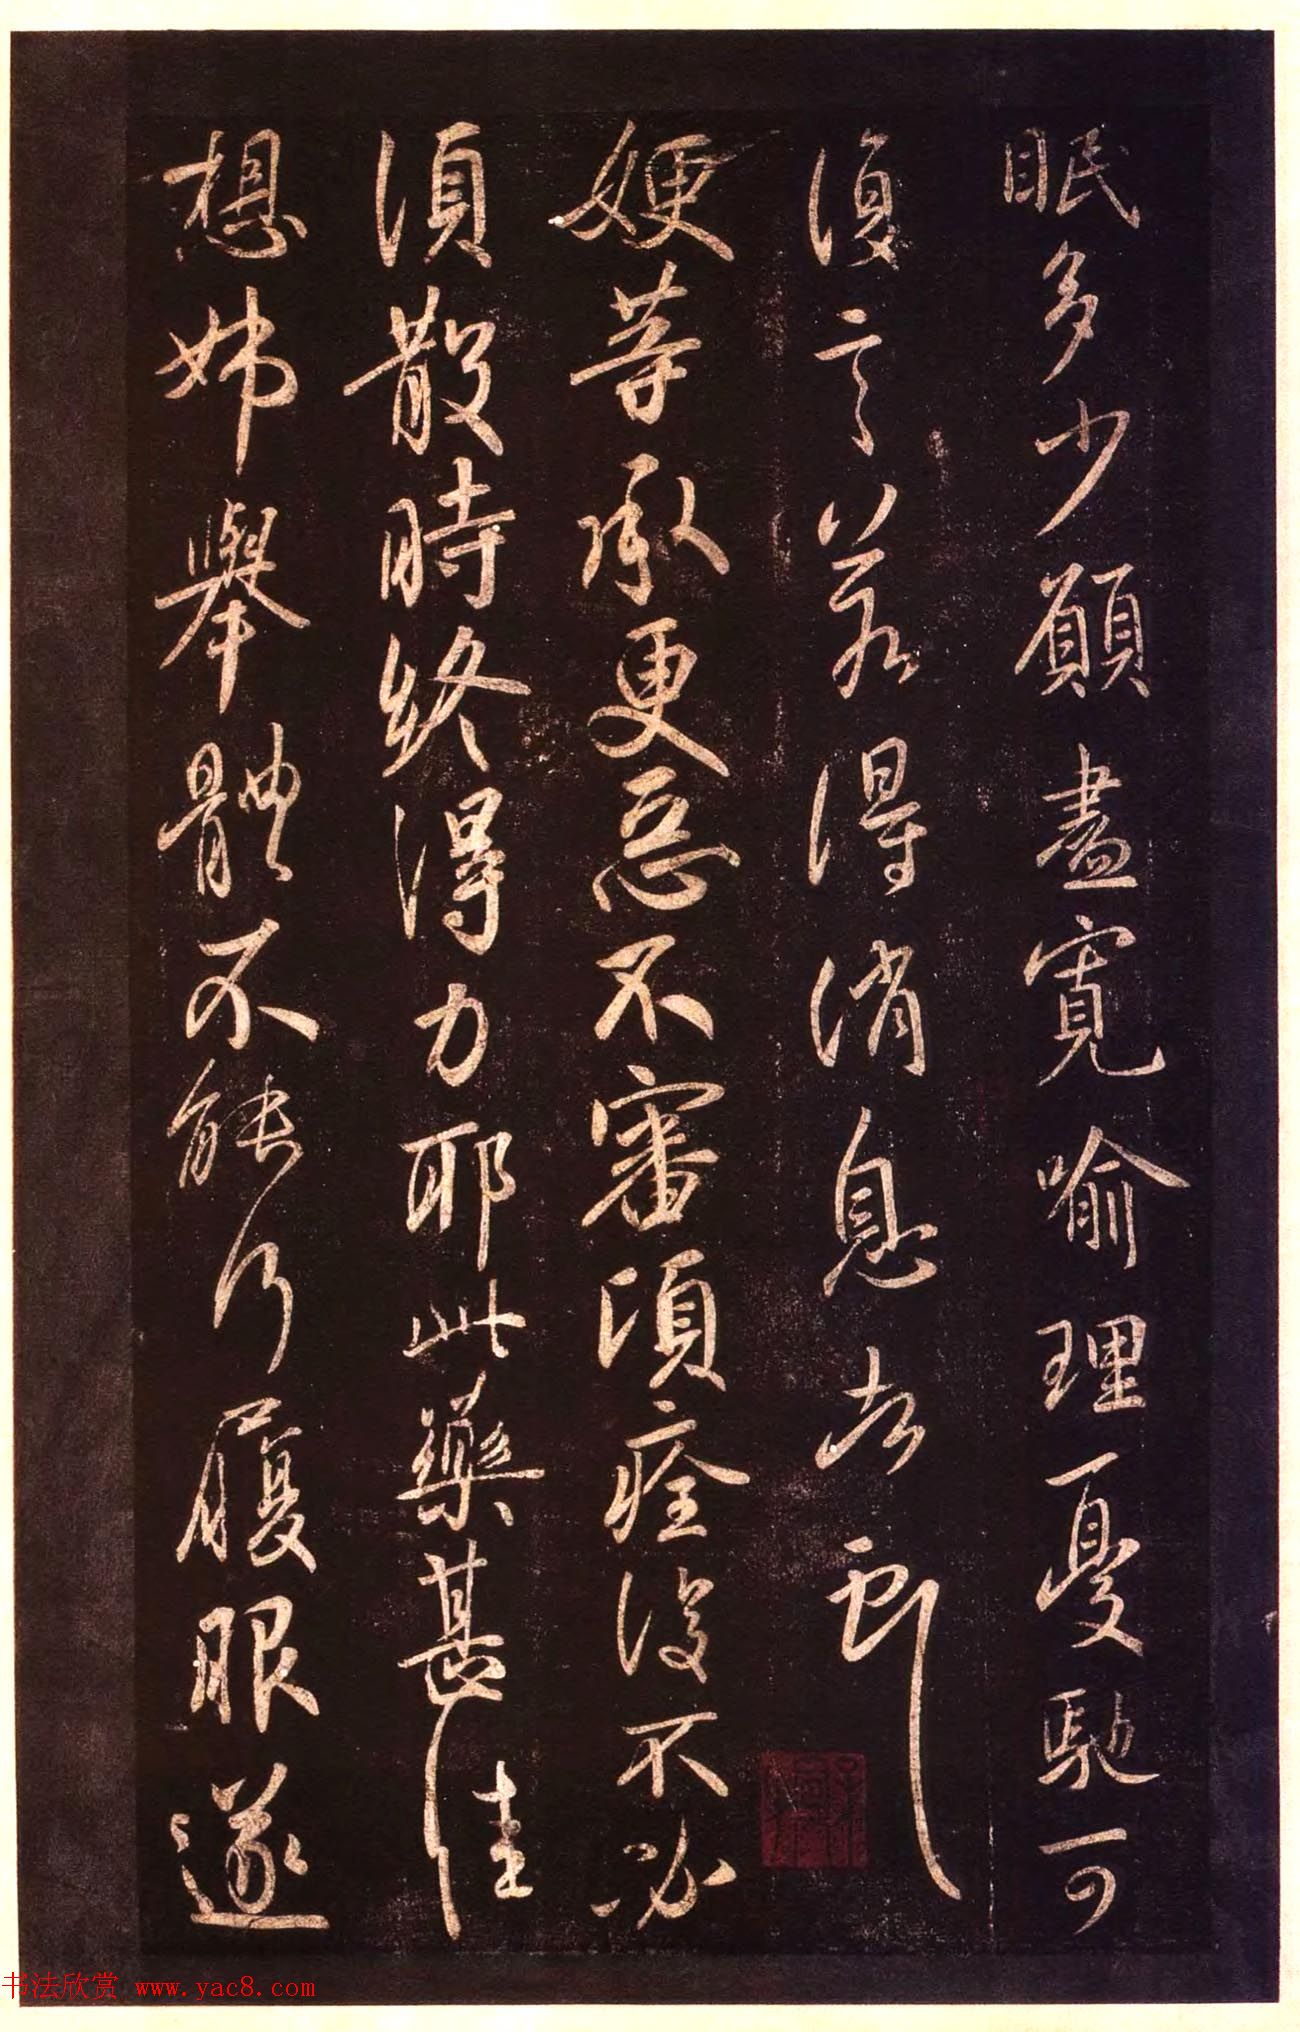 眠多少願盡寬喻理憂馳可
復言若得消息告耶
㛐等承更惡不審須痊復不必
須散時終得力耶此藥甚佳
想姊舉體不能行履眼遂
书法欣赏 www.yac8.com